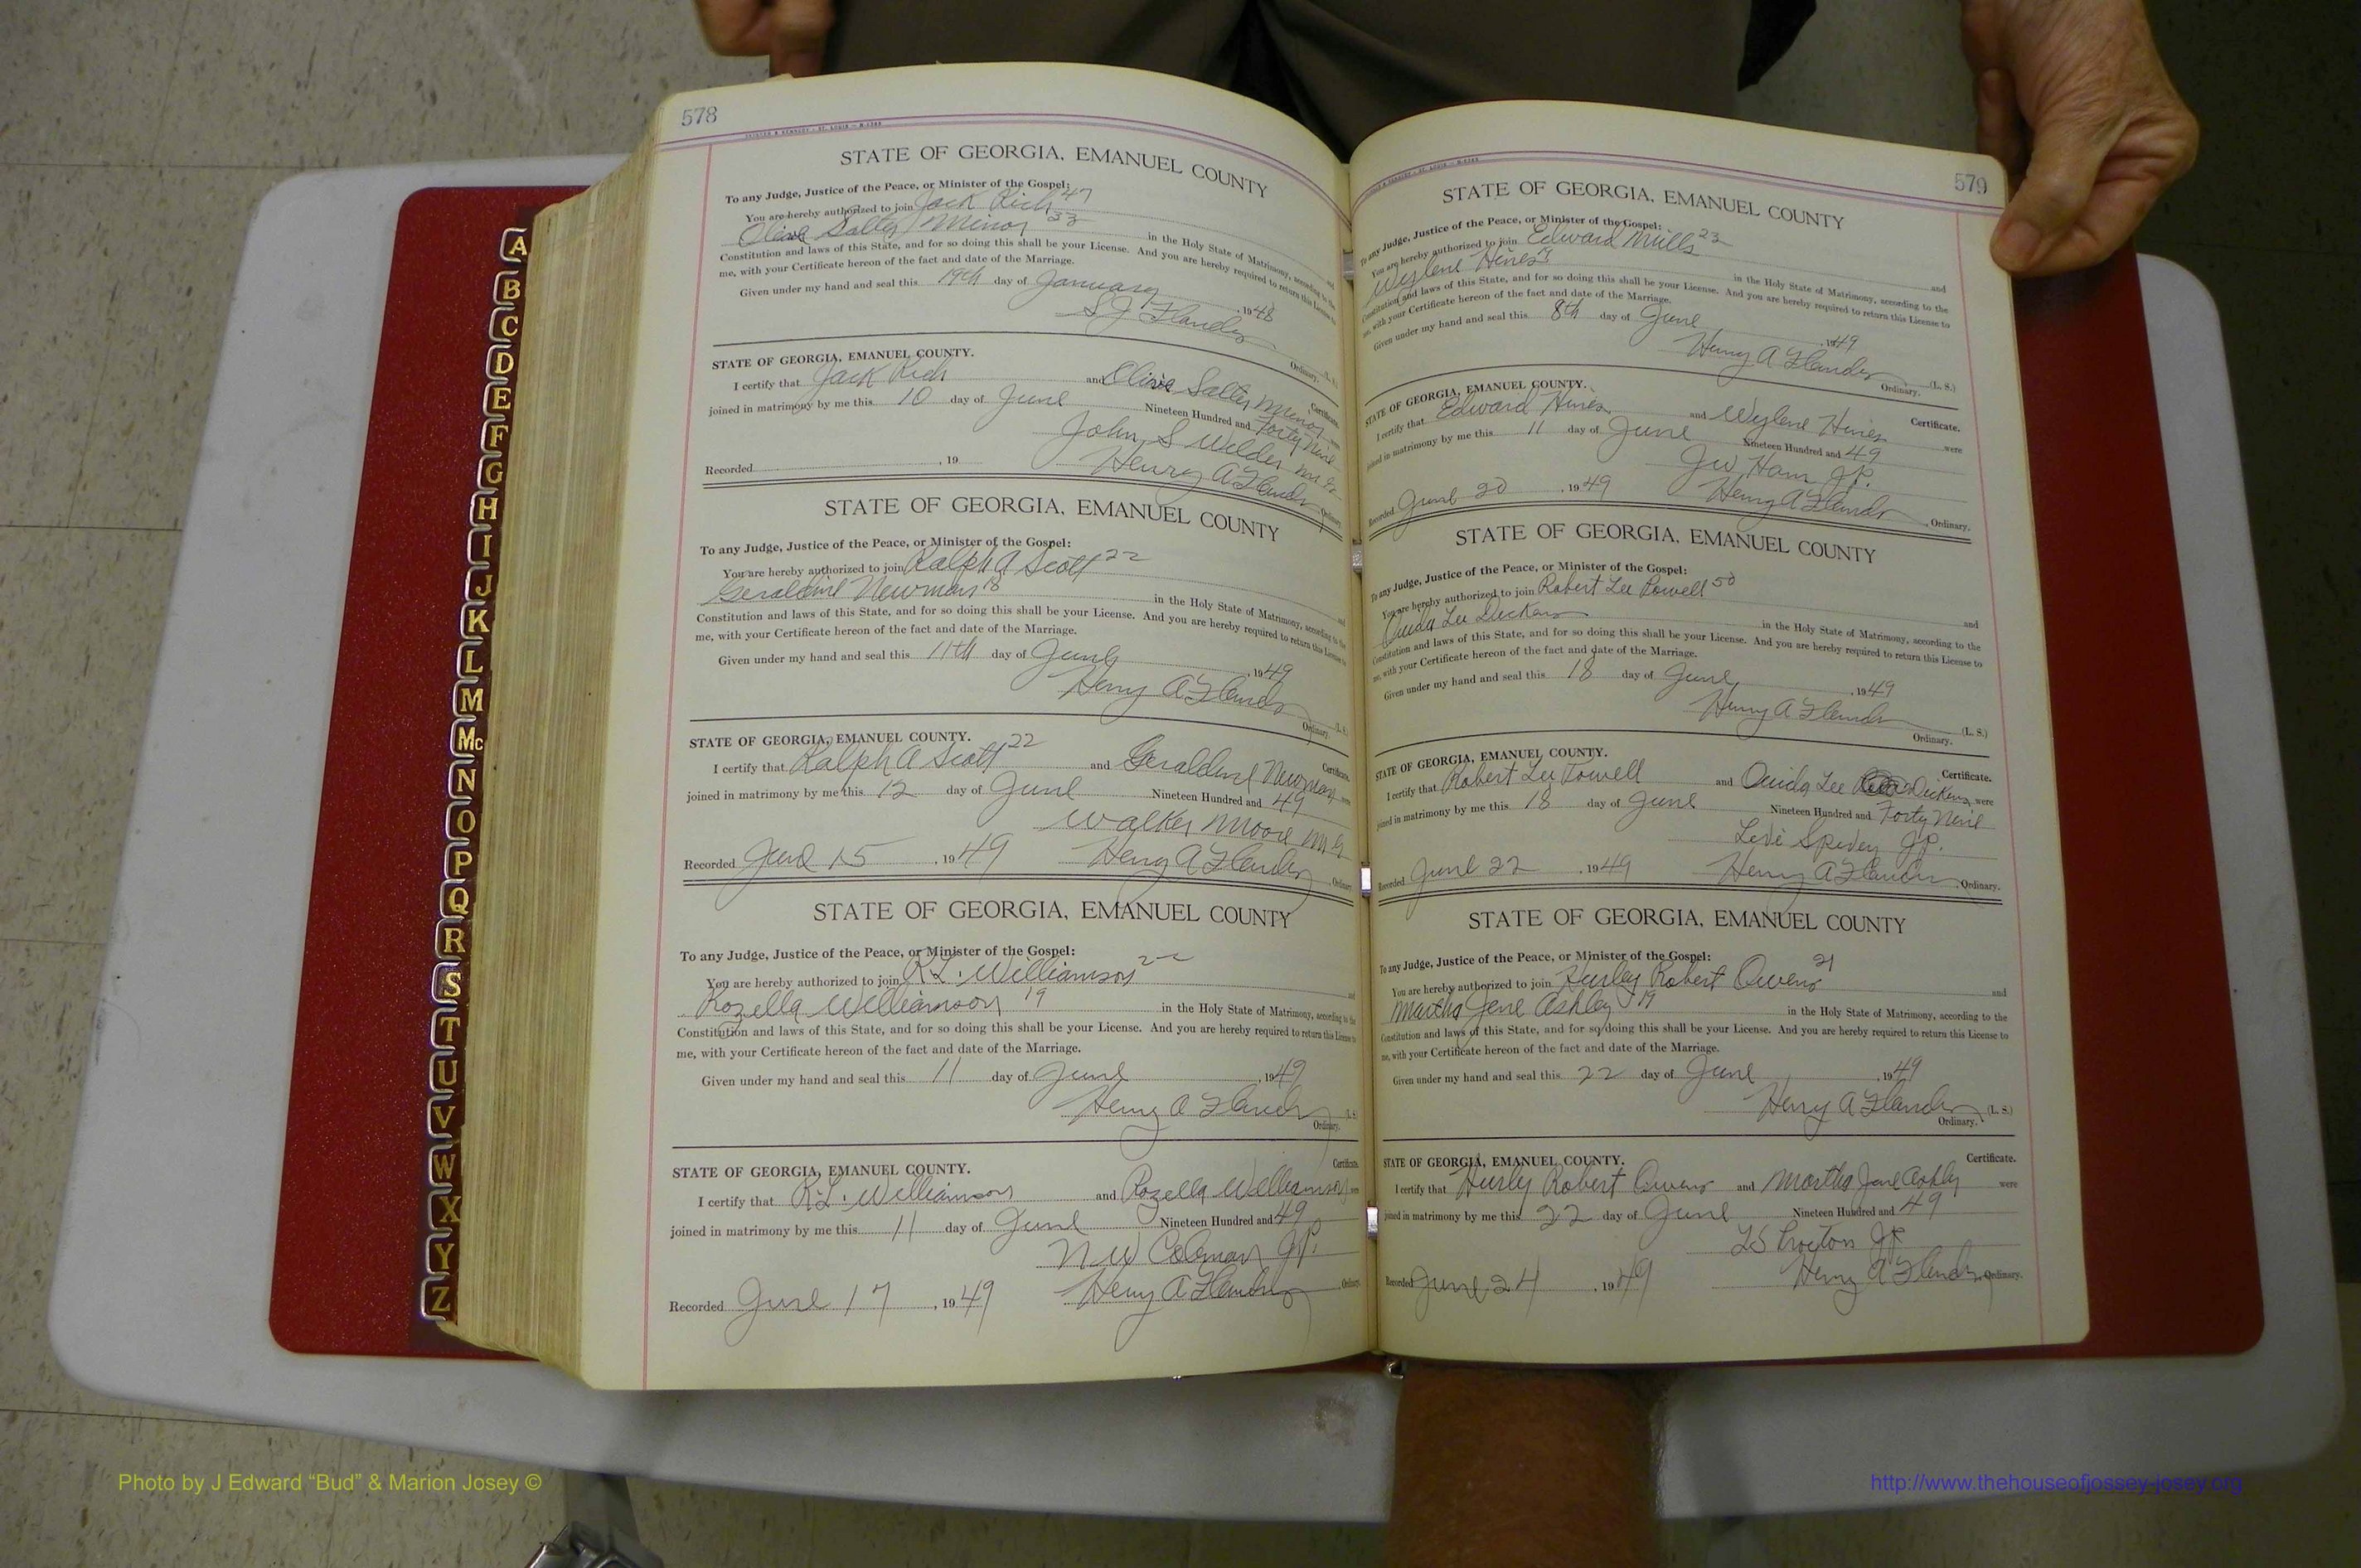 578
STATE OF GEORGIA, EMANUEL COUNTY
To any Judge, Justice of the Peace, or Minister of the Gospel:
You are hereby authorized to join Jack Rich 47
Olive Salter Minor 33 in the Holy State of Matrimony, according to the
Constitution and laws of this State, and for so doing this shall be your License. And you are hereby required to return this License to
me, with your Certificate hereon of the fact and date of the Marriage.
Given under my hand and seal this 19th day of January, 1948
S J Flanders
Ordinary. (L. S.)
STATE OF GEORGIA, EMANUEL COUNTY.
Certificate.
I certify that Jack Rich and Olive Salter Minor were
joined in matrimony by me this 10 day of June Nineteen Hundred and Forty Nine
John S Wilder
Recorded , 19 Henry A Flanders Ordinary.
STATE OF GEORGIA, EMANUEL COUNTY
To any Judge, Justice of the Peace, or Minister of the Gospel:
You are hereby authorized to join Ralph A Scott 22 and
Geraldine Newman 18 in the Holy State of Matrimony, according to the
Constitution and laws of this State, and for so doing this shall be your License. And you are hereby required to return this License to
me, with your Certificate hereon of the fact and date of the Marriage.
Given under my hand and seal this 11th day of June, 1949
Henry A Flanders (L. S.)
Ordinary.
STATE OF GEORGIA, EMANUEL COUNTY.
Certificate.
I certify that Ralph A Scott 22 and Geraldine Newman were
joined in matrimony by me this 12 day of June Nineteen Hundred and 49
Walker Moore M G
Recorded June 15, 1949 Henry A Flanders Ordinary.
STATE OF GEORGIA, EMANUEL COUNTY
To any Judge, Justice of the Peace, or Minister of the Gospel:
You are hereby authorized to join R.L. Williamson 22 and
Rozella Williamson 19 in the Holy State of Matrimony, according to the
Constitution and laws of this State, and for so doing this shall be your License. And you are hereby required to return this License to
me, with your Certificate hereon of the fact and date of the Marriage.
Given under my hand and seal this 11 day of June, 1949
Henry A Flanders (L. S.)
Ordinary.
STATE OF GEORGIA, EMANUEL COUNTY.
Certificate.
I certify that R.L. Williamson and Rozella Williamson were
joined in matrimony by me this 11 day of June Nineteen Hundred and 49
N W Coleman J.P.
Recorded June 17, 1949 Henry A Flanders Ordinary.
579
STATE OF GEORGIA, EMANUEL COUNTY
To any Judge, Justice of the Peace, or Minister of the Gospel:
You are hereby authorized to join Edward Mills 23 and
Wylene Hines in the Holy State of Matrimony, according to the
Constitution and laws of this State, and for so doing this shall be your License. And you are hereby required to return this License to
me, with your Certificate hereon of the fact and date of the Marriage.
Given under my hand and seal this 8th day of June, 1949
Henry A Flanders (L. S.)
Ordinary.
STATE OF GEORGIA, EMANUEL COUNTY.
Certificate.
I certify that Edward Hines and Wylene Hines were
joined in matrimony by me this 11 day of June Nineteen Hundred and 49
J W Ham J.P.
Recorded June 20, 1949 Henry A Flanders, Ordinary.
STATE OF GEORGIA, EMANUEL COUNTY
To any Judge, Justice of the Peace, or Minister of the Gospel:
You are hereby authorized to join Robert Lee Powell 50 and
Ouida Lee Dickens in the Holy State of Matrimony, according to the
Constitution and laws of this State, and for so doing this shall be your License. And you are hereby required to return this License to
me, with your Certificate hereon of the fact and date of the Marriage.
Given under my hand and seal this 18 day of June, 1949
Henry A Flanders (L. S.)
Ordinary.
STATE OF GEORGIA, EMANUEL COUNTY.
Certificate.
I certify that Robert Lee Powell and Ouida Lee Dickens were
joined in matrimony by me this 18 day of June Nineteen Hundred and Forty Nine
Levi Spivey J.P.
Recorded June 22, 1949 Henry A Flanders, Ordinary.
STATE OF GEORGIA, EMANUEL COUNTY
To any Judge, Justice of the Peace, or Minister of the Gospel:
You are hereby authorized to join Hurley Robert Owens 21 and
Martha Jene Ashley 19 in the Holy State of Matrimony, according to the
Constitution and laws of this State, and for so doing this shall be your License. And you are hereby required to return this License to
me, with your Certificate hereon of the fact and date of the Marriage.
Given under my hand and seal this 22 day of June, 1949
Henry A Flanders (L. S.)
Ordinary.
STATE OF GEORGIA, EMANUEL COUNTY.
Certificate.
I certify that Hurley Robert Owens and Martha Jene Ashley were
joined in matrimony by me this 22 day of June Nineteen Hundred and 49
J.P.
Recorded June 24, 1949 Henry A Flanders, Ordinary.
A
B
C
D
E
F
G
H
I
J
K
L
M
Mc
N
O
P
Q
R
S
T
U
V
W
X
Y
Z
Photo by J Edward “Bud” & Marion Josey ©
http://www.thehouseofjossey-josey.org